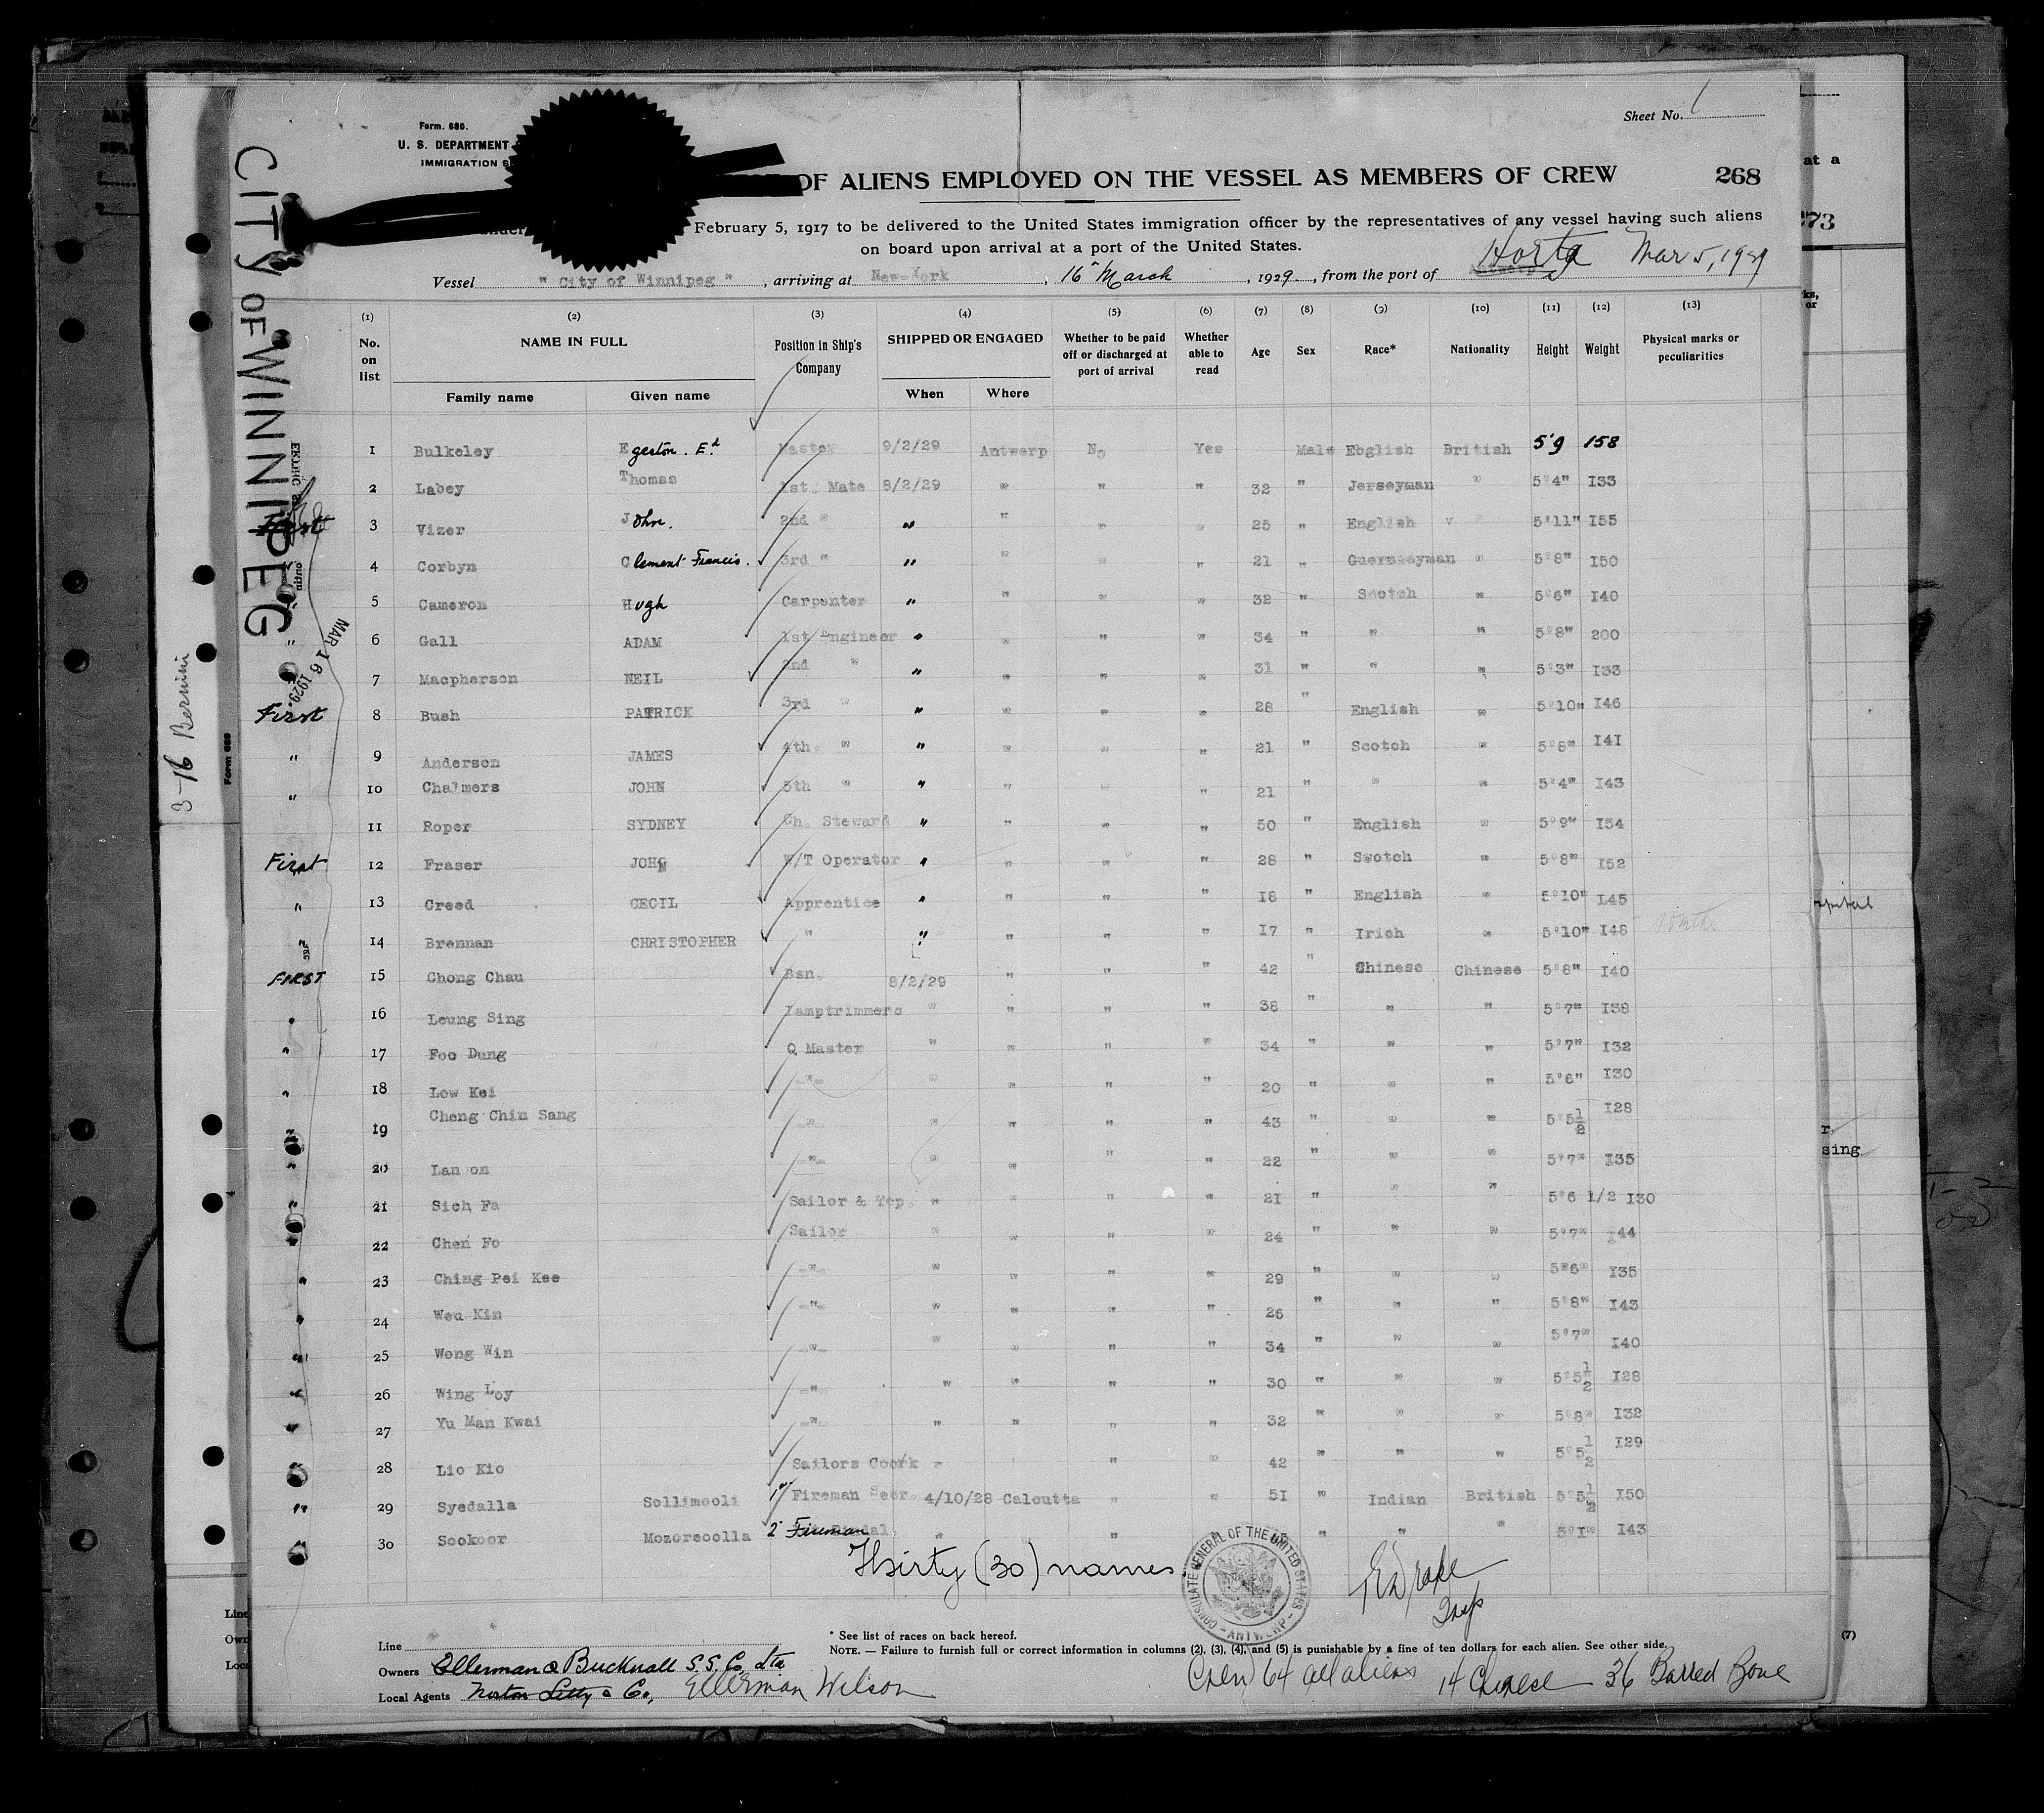 Sheet No. 1
Form. 680.
U. S. DEPARTMENT
IMMIGRATION S
OF ALIENS EMPLOYED ON THE VESSEL AS MEMBERS OF CREW 268
February 5, 1917 to be delivered to the United States immigration officer by the representatives of any vessel having such aliens
on board upon arrival at a port of the United States.
Horta Mar 5, 1929
Vessel " City of Winnipeg ", arriving at New-York, 16 March, 1929., from the port of Antwerp
CITY OF WINNIPEG
MAR 16 1929
3-16 Bernini
Form 689
(1) (2) (3) (4) (5) (6) (7) (8) (9) (10) (11) (12) (13)
No. on list NAME IN FULL Position in Ship's Company SHIPPED OR ENGAGED Whether to be paid off or discharged at port of arrival Whether able to read Age Sex Race* Nationality Height Weight Physical marks or peculiarities
Family name Given name When Where
1 Bulkeley Egerton. Ed. Master 9/2/29 Antwerp No Yes Male Ebglish British 5'9 158
2 Labey Thomas 1st. Mate 8/2/29 " " " 32 " Jerseyman " 5'4" I33
First 3 Vizer John. 2nd " " " " " 25 " English " 5'11" I55
4 Corbyn Clement Francis. 3rd " " " " " 21 " Guernseyman " 5'8" I50
5 Cameron Hugh Carpenter " " " " 32 " Scotch " 5'6" I40
" 6 Gall ADAM 1st Engineer " " " " 34 " " " 5'8" 200
7 Macpherson NEIL 2nd " " " " " 31 " " " 5'3" I33
First 8 Bush PATRICK 3rd " " " " " 28 " English " 5'10" I46
" 9 Anderson JAMES 4th. " " " " " 21 " Scotch " 5'8" I4I
" 10 Chalmers JOHN 5th " " " " " 21 " " " 5'4" I43
11 Roper SYDNEY Ch. Steward " " " " 50 " English " 5'9" I54
First 12 Fraser JOHN W/T Operator " " " " 28 " Scotch " 5'8" I52
" 13 Creed CECIL Apprentice " " " " I8 " English " 5'10" I45
" 14 Brennan CHRISTOPHER " " " " " I7 " Irish " 5'10" I48
FIRST 15 Chong Chau Bsn. 8/2/29 " " " 42 " Chinese Chinese 5'8" I40
" 16 Leung Sing Lamptrimmers " " " " 38 " " " 5'7" I38
" 17 Foo Dung Q Master " " " " 34 " " " 5'7" I32
" 18 Low Kei " " " " " 20 " " " 5'6" I30
" 19 Cheng Chin Sang " " " " " 43 " " " 5'5 1/2 I28
" 20 Lan on " " " " " 22 " " " 5'7" I35
" 21 Sich Fa Sailor & Top. " " " " 2I " " " 5'6 1/2 I30
" 22 Chen Fo Sailor " " " " 24 " " " 5'7" I44
" 23 Ching Pei Kee " " " " " 29 " " " 5'6" I35
" 24 Wou Kin " " " " " 26 " " " 5'8" I43
" 25 Wong Win " " " " " 34 " " " 5'7" I40
" 26 Wing Loy " " " " " 30 " " " 5'5 1/2 I28
" 27 Yu Man Kwai " " " " " 32 " " " 5'8" I32
28 Lio Kio Sailors Cook " " " " 42 " " " 5'5 1/2 I29
" 29 Syedalla Sollimooli 1" Fireman Secr. 4/10/28 Calcutta " " 5I " Indian British 5'5 1/2 I50
30 Sookoor Mozorsoolla 2" Fireman " " " " " 5'I" I43
Thirty (30) names
CONSULATE GENERAL OF THE UNITED STATES - ANTWERP -
Drake
Insp
Line
* See list of races on back hereof.
NOTE. — Failure to furnish full or correct information in columns (2), (3), (4), and (5) is punishable by a fine of ten dollars for each alien. See other side.
Owners Ellerman & Bucknall S.S. Co. Ltd.
Local Agents Norton Lilly & Co, Ellerman Wilson
Crew 64 all aliens 14 Chinese 36 Barred Zone
at a
273
or
sing
(7)